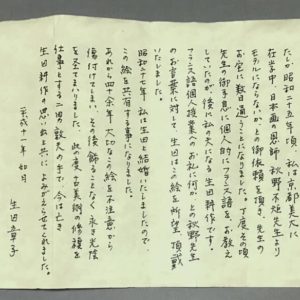 たしか昭和二十五年頃、私は京都美大に
在学中、日本画の恩師 秋野不矩先生より
モデルにならないか、との御依頼を頂き、先生の
お宅に数日通うことになりました。丁度その頃
先生の御子息に個人的にフランス語を、お教え
していたのが、後に私の夫になる生田耕作です。
フランス語個人授業へのお礼に何か、との秋野先生
のお言葉に対して、生田はこの絵を所望 頂戴
いたしました。
昭和二十七年、私は生田と結婚いたしましたので
この絵を共有する事になりました。
あれから四十余年、大切なこの絵を不注意から
傷付けてしまい、その後 飾ることなく永き光陰
を経てまいりました。此の度、古美術の修復を
仕事とする二男の敦夫の手で、今は亡き
生田耕作の思い出と共に、よみがえらせてくれました。
平成十一年 如月
生田章子